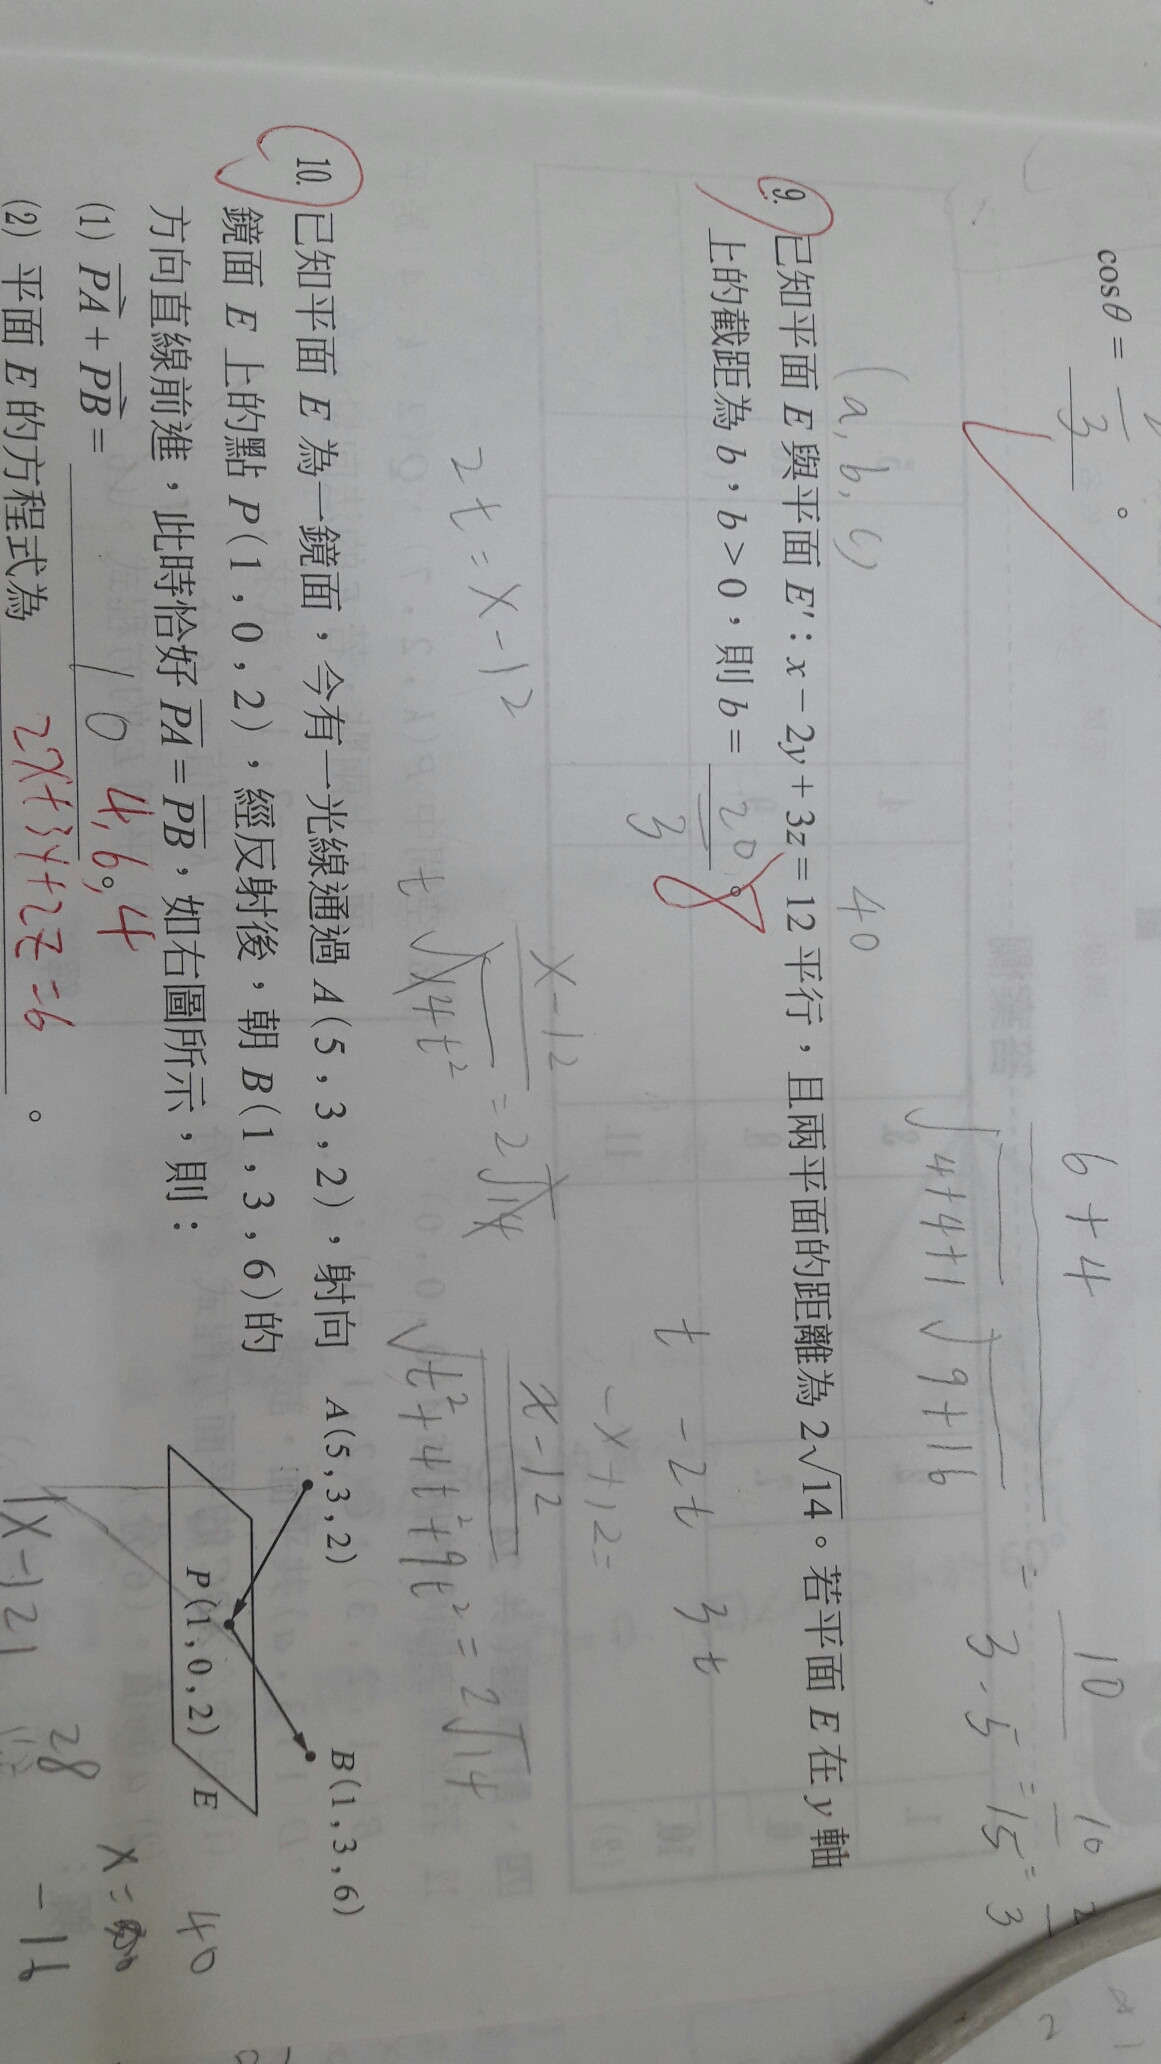 cosθ = 3 。
6+4
√4+4+1 √9+16
= 10
3·5
= 10
15
= 2
3
9. 已知平面 E 與平面 E′：x − 2y + 3z = 12 平行，且兩平面的距離為 2√14。若平面 E 在 y 軸
上的截距為 b，b > 0，則 b = 20 。
3
8
(a, b, c)
40
t -2t 3t
-x+12=
2t = x-12
x-12
t√14t²
= 2√14
x-12
√t²+4t²+9t² = 2√14
10. 已知平面 E 為一鏡面，今有一光線通過 A(5，3，2)，射向
鏡面 E 上的點 P(1，0，2)，經反射後，朝 B(1，3，6)的
方向直線前進，此時恰好 PA = PB，如右圖所示，則：
(1) PA + PB = 10 4,6,4 。
(2) 平面 E 的方程式為 2x+3y+2z=6 。
A(5,3,2)
B(1,3,6)
P(1,0,2)
E
|x-12|
28
40
x=
-16